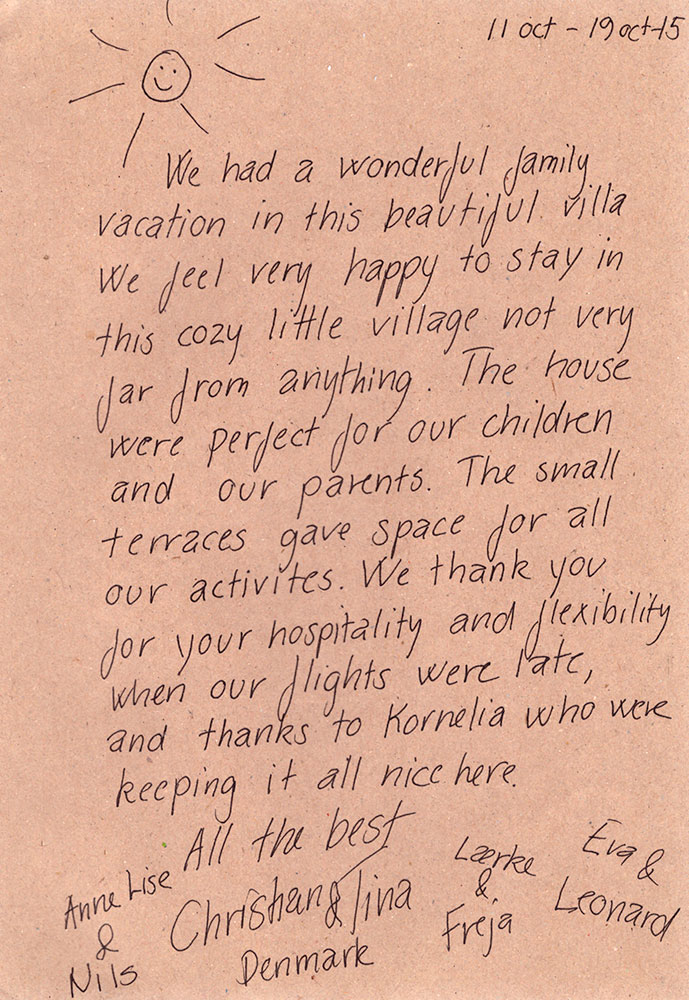 11 oct – 19 oct-15
We had a wonderful family
vacation in this beautiful villa
We feel very happy to stay in
this cozy little village not very
far from anything. The house
were perfect for our children
and our parents. The small
terraces gave space for all
our activites. We thank you
for your hospitality and flexibility
when our flights were late,
and thanks to Kornelia who were
keeping it all nice here.
All the best
Anne Lise
&
Nils
Christian & Tina
Denmark
Lærke
&
Freja
Eva &
Leonard